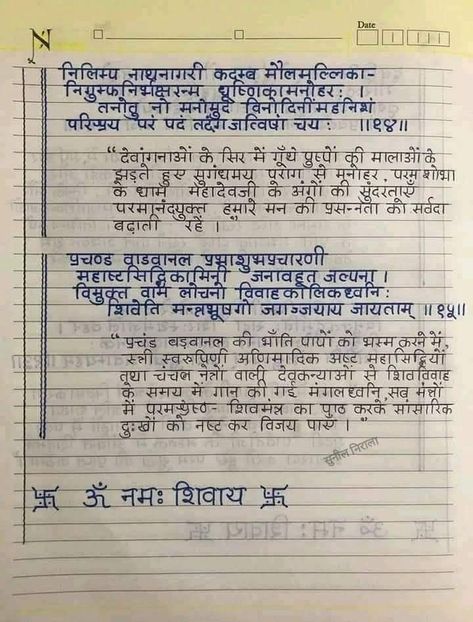 N
Date
निलिम्प नाथनागरी कदम्ब मौलमल्लिका-
निगुम्फनिर्भक्षरन्म धूष्णिकामनोहरः ।
तनोतु नो मनोमुदं विनोदिनींमहनिशं
परिश्रय परं पदं तदंगजत्विषां चयः ॥१४॥
“देवांगनाओं के सिर में गूँथे पुष्पों की मालाओं के
झड़ते हुए सुगंधमय पराग से मनोहर, परम शोभा
के धाम महादेवजी के अंगों की सुंदरताएँ
परमानंदयुक्त हमारे मन की प्रसन्नता को सर्वदा
बढ़ाती रहें ।
प्रचण्ड वाडवानल प्रभाशुभप्रचारणी
महाष्टसिद्धिकामिनी जनावहूत जल्पना ।
विमुक्त वाम लोचनो विवाहकालिकध्वनिः
शिवेति मन्त्रभूषगो जगज्जयाय जायताम् ॥१५॥
“प्रचंड बड़वानल की भाँति पापों को भस्म करने में,
स्त्री स्वरूपिणी अणिमादिक अष्ट महासिद्धियों
तथा चंचल नेत्रों वाली देवकन्याओं से शिवविवाह
के समय में गान की गई मंगलध्वनि सब मंत्रों
में परमश्रेष्ठ- शिवमंत्र का पाठ करके सांसारिक
दुःखों को नष्ट कर विजय पाएँ ।”
सुनील निराला
卐 ॐ नमः शिवाय 卐